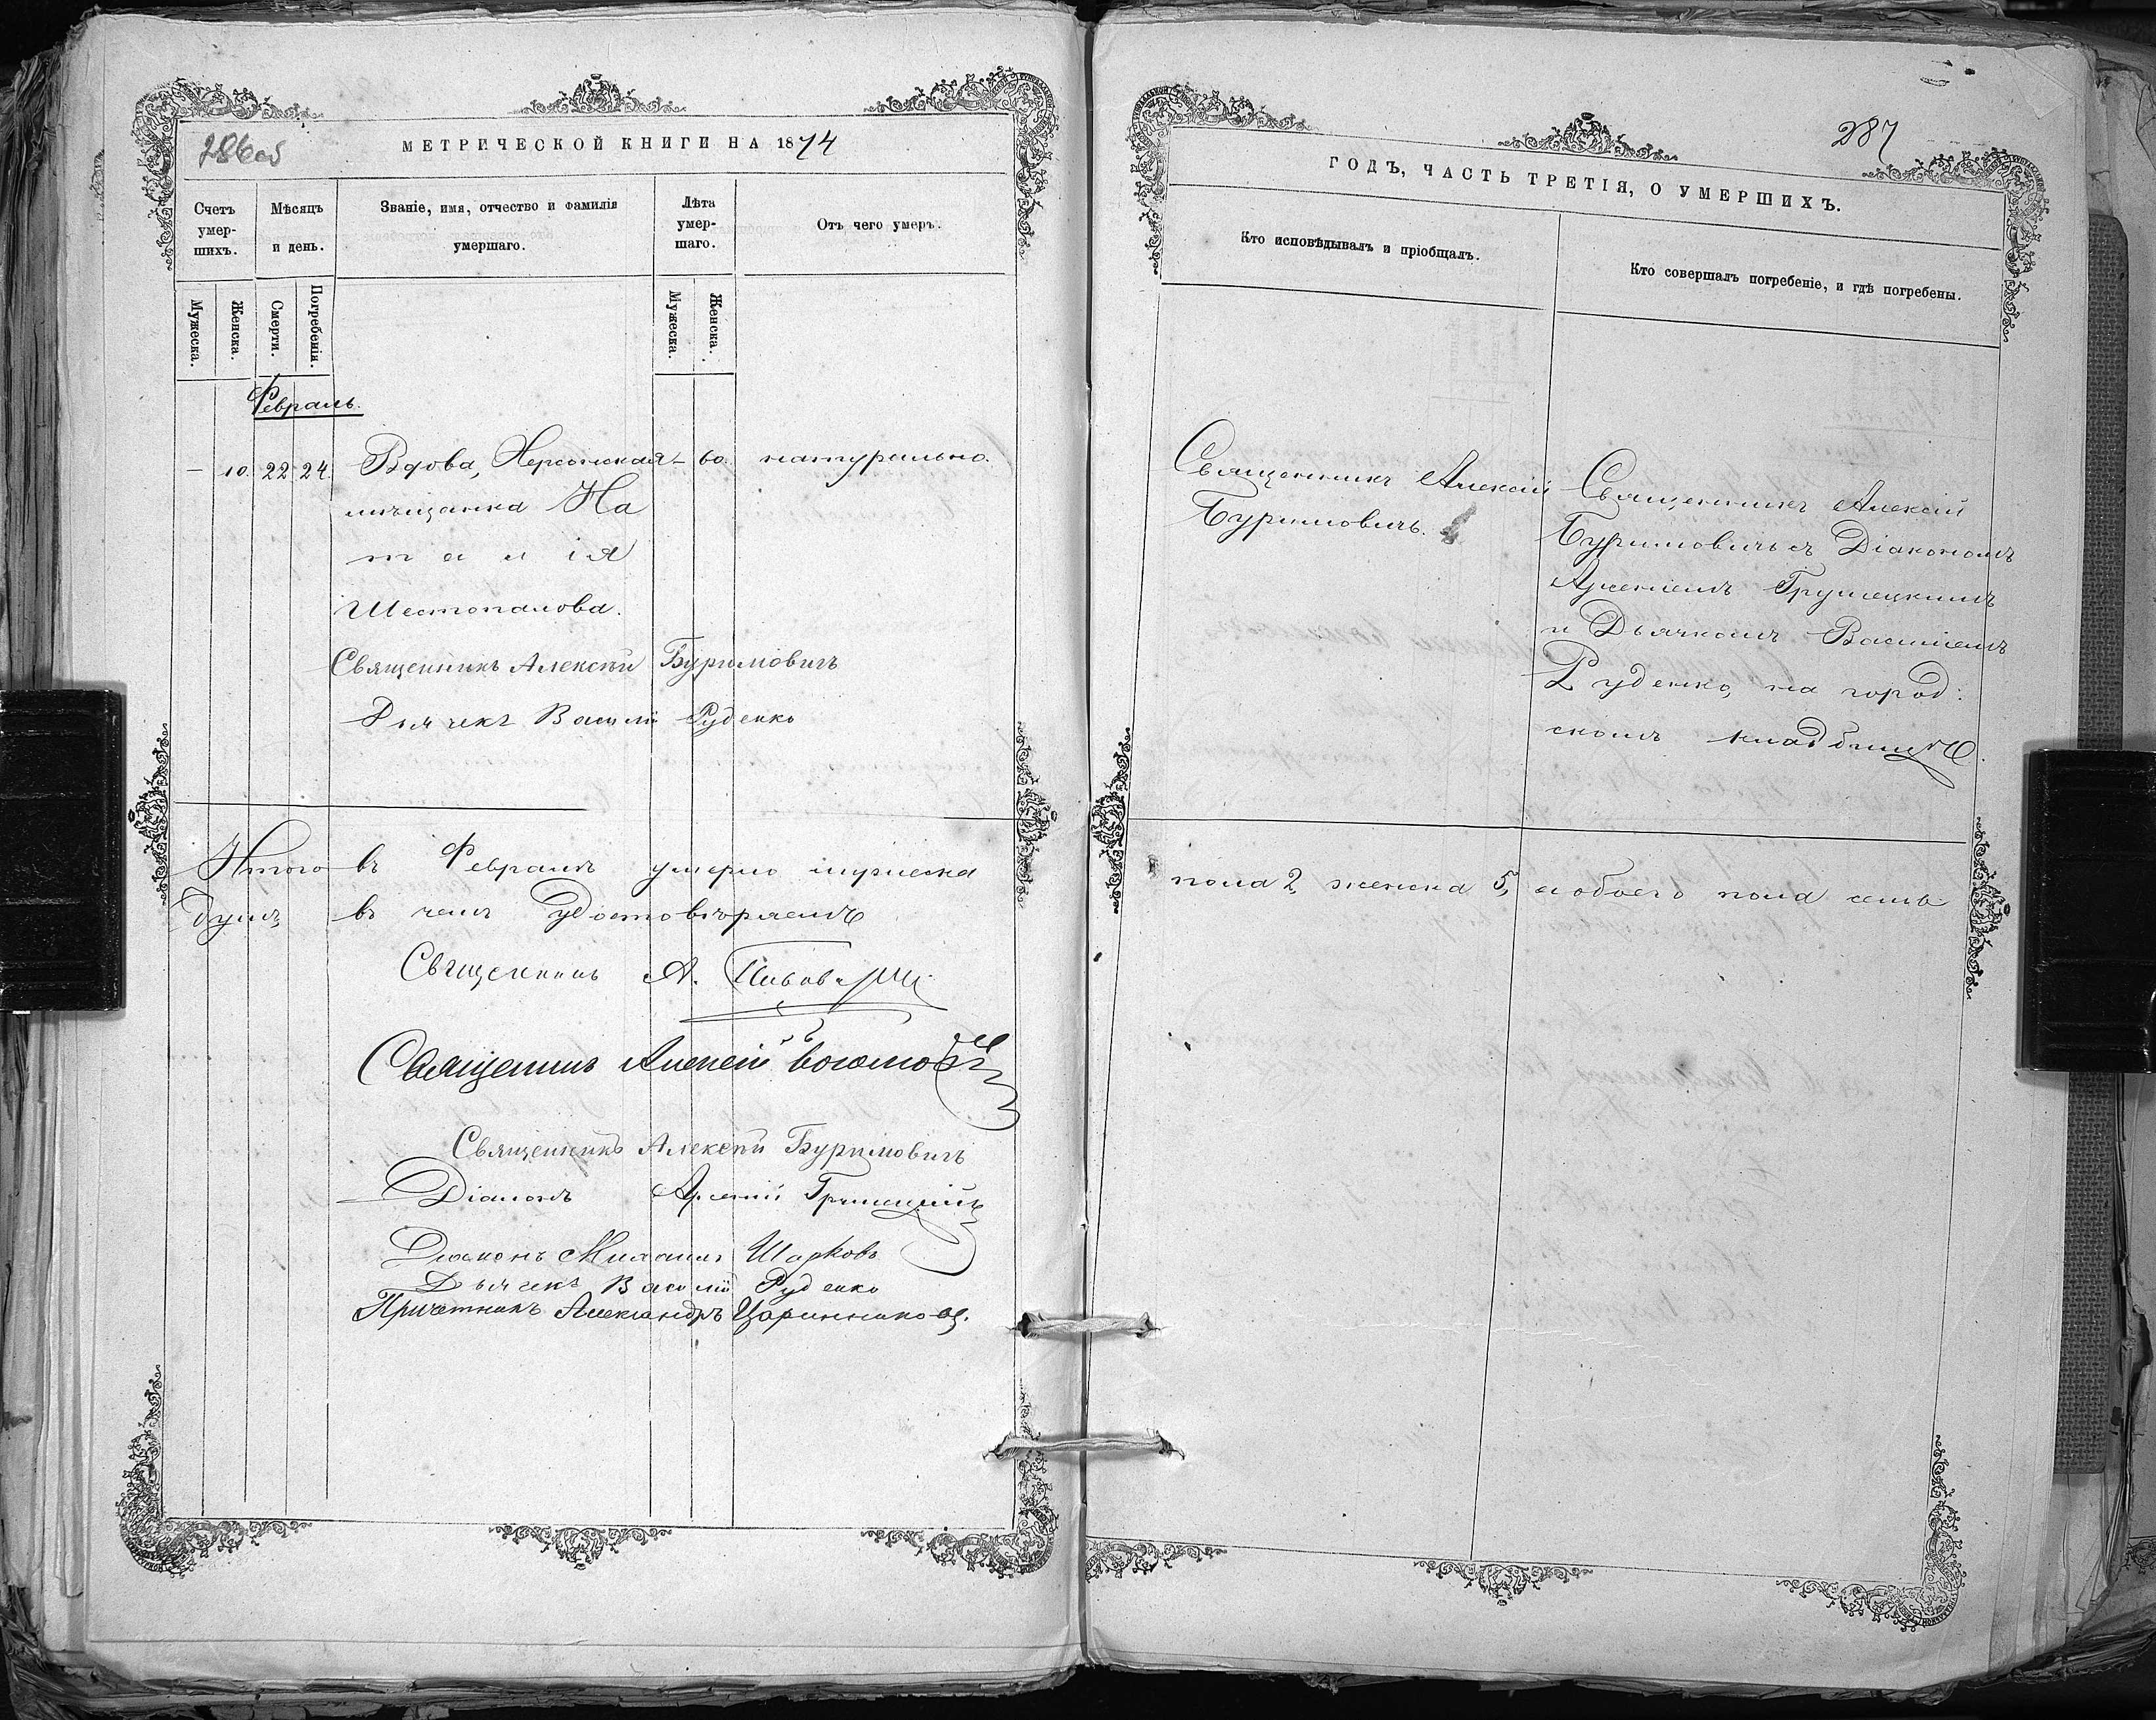 286об
МЕТРИЧЕСКОЙ КНИГИ НА 1874
Счетъ умер-шихъ.
Мѣсяцъ и день.
Званіе, имя, отчество и фамилія умершаго.
Лѣта умер-шаго.
Отъ чего умеръ.
Мужеска.
Женска.
Смерти.
Погребенія.
Мужеска.
Женска.
Февраль.
— 10. 22 24. Вдова, Херсонская — 60. натурально.
мѣщанка На
талія
Шестопалова.
Священникъ Алексѣй Буримовичъ
Дьячекъ Василій Руденко
Итого въ Февралѣ умерло мужеска
душъ, въ чемъ удостовѣряемъ
Священникъ А.
Священникъ Алексѣй
Священникъ Алексѣй Буримовичъ
Діаконъ Арсеній Грушецкій
Діаконъ Михаилъ Шарковъ
Дьячекъ Василій Руденко
Причетникъ Александръ
287
ГОДЪ, ЧАСТЬ ТРЕТІЯ, О УМЕРШИХЪ.
Кто исповѣдывалъ и пріобщалъ.
Кто совершалъ погребеніе, и гдѣ погребены.
Священникъ Алексій
Буримовичъ.
Священникъ Алексій
Буримовичъ съ Діакономъ
Арсеніемъ Грушецкимъ
и Дьячкомъ Василіемъ
Руденко, на город:
скомъ кладбищѣ.
пола 2 женска 5, а обоего пола семь